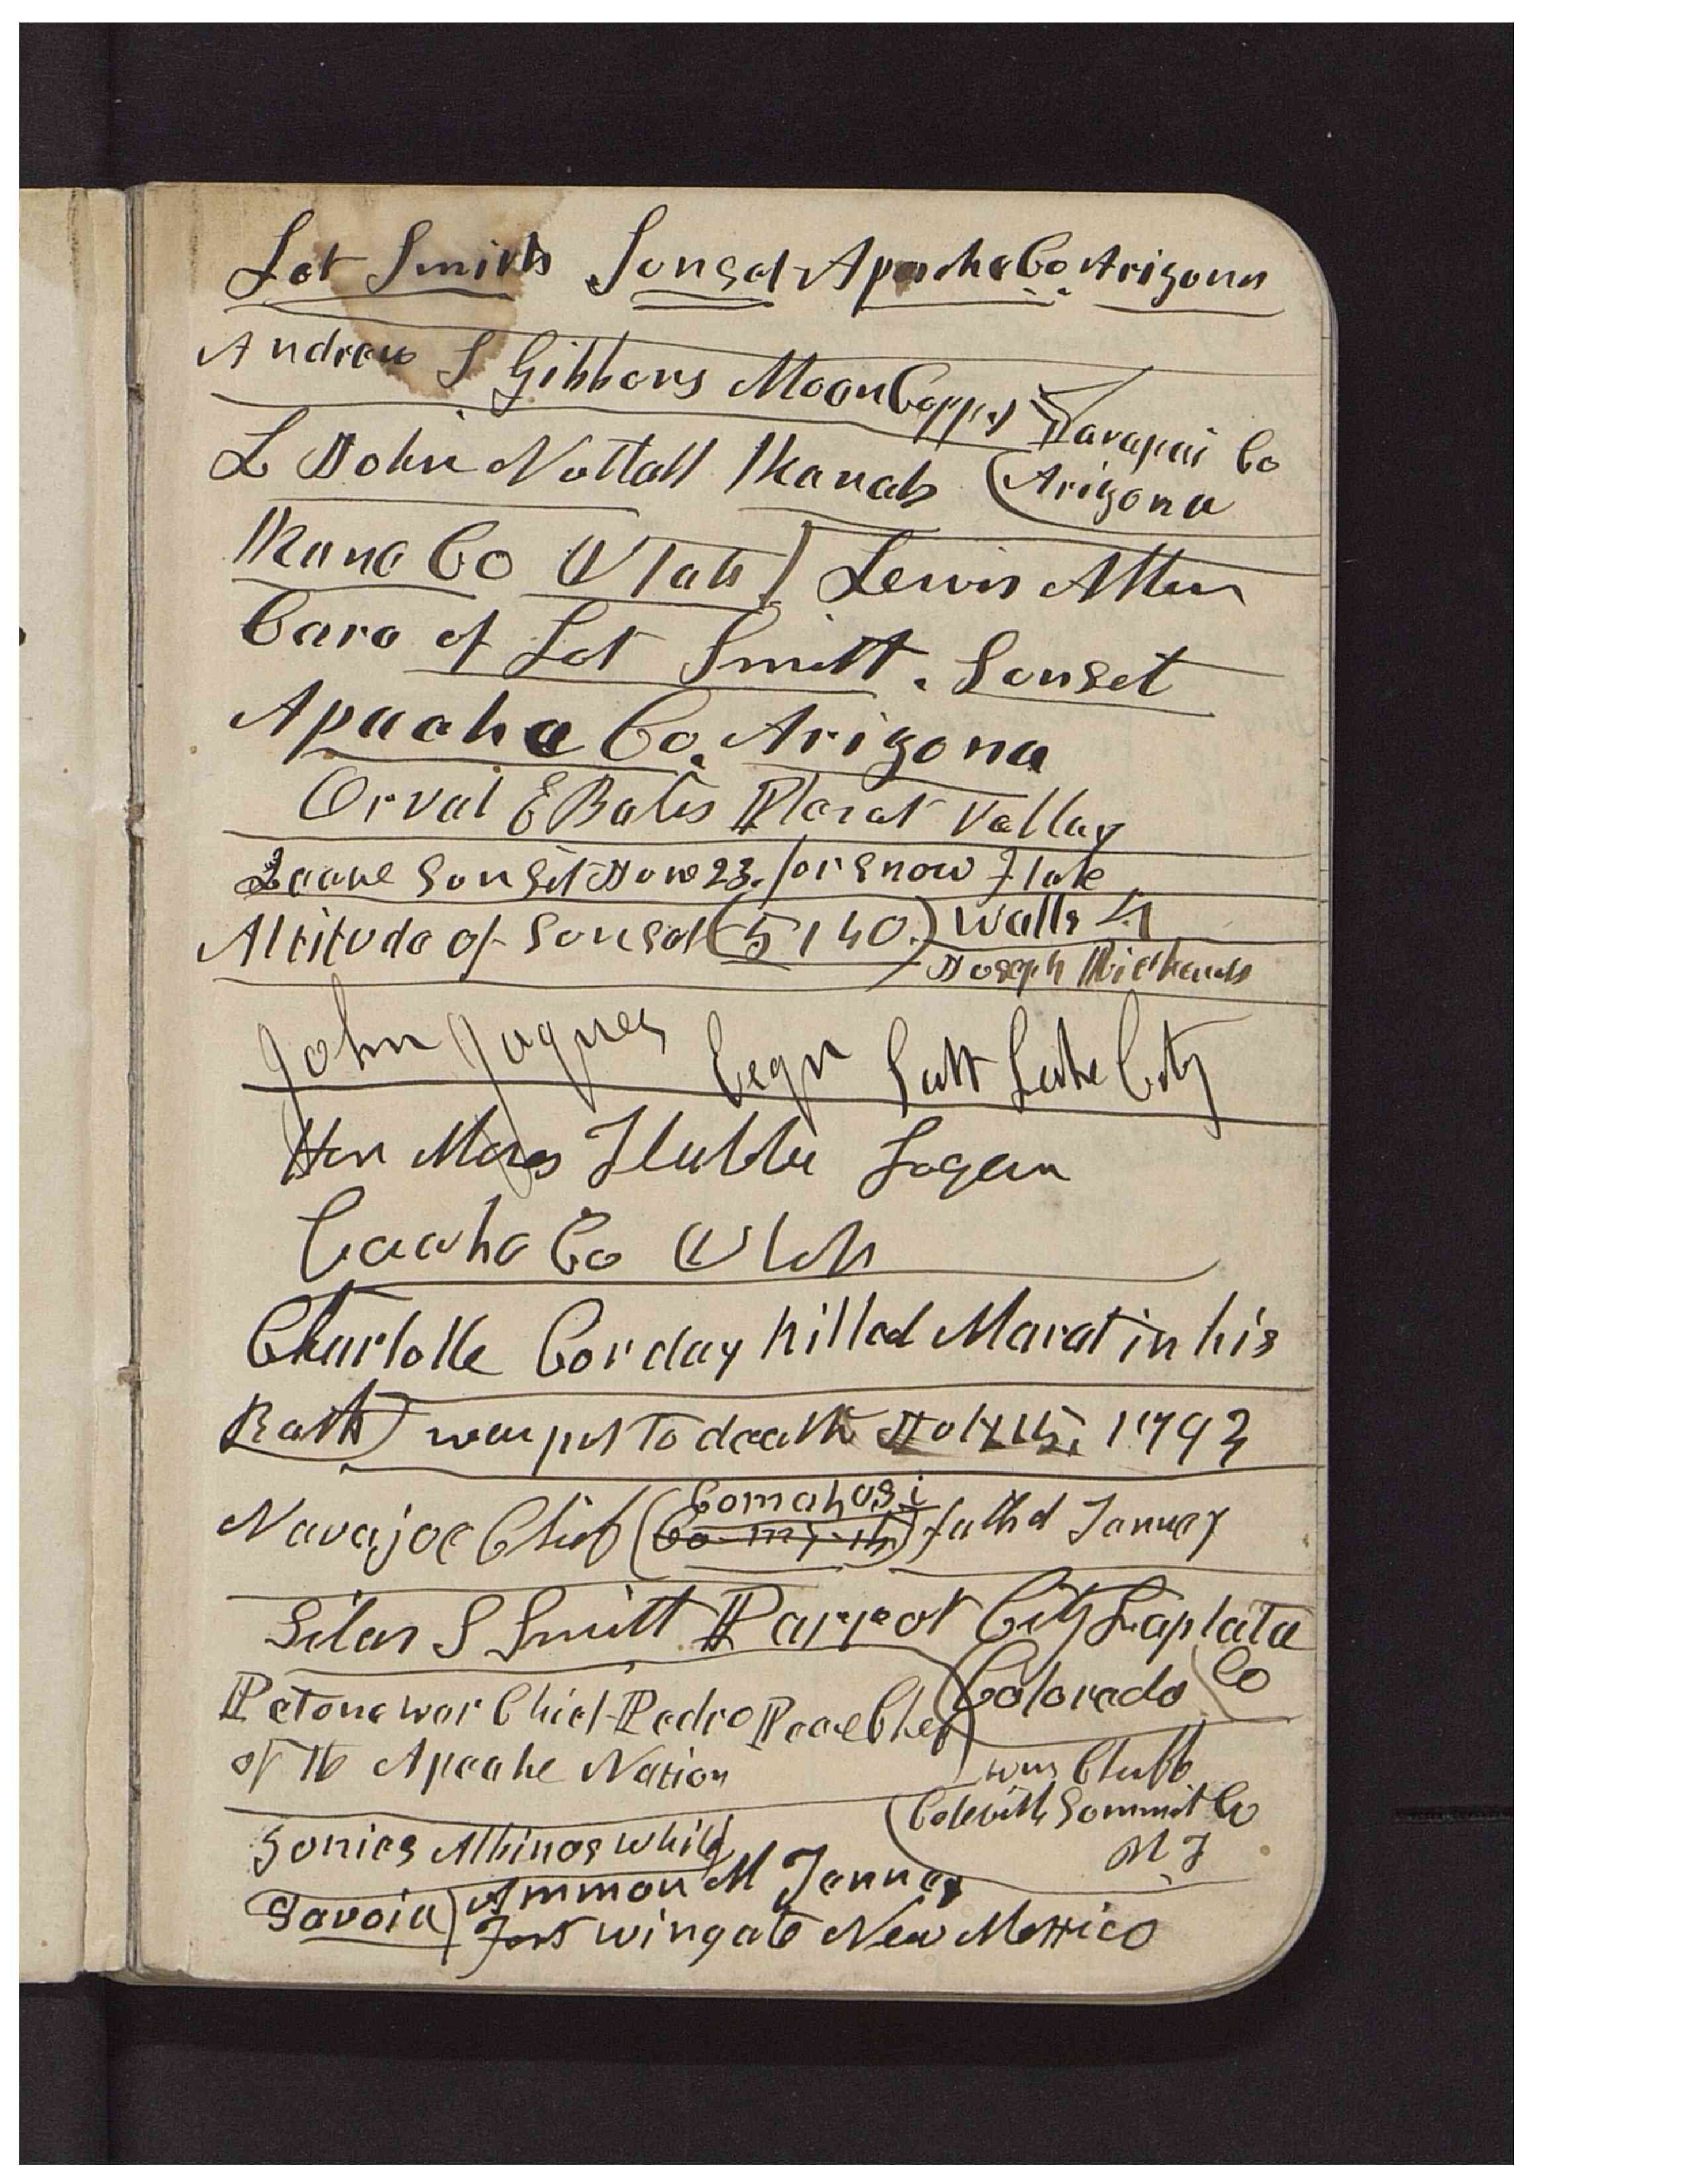 Lot Smith Sunset Apache Co. Arizona
Andrew S Gibbons Moon Coppy Yavapai Co
Arizona
L John Nuttall Kanab
Kane Co Utah) Lewis Allen
Care of Lot Smith. Sunset
Apache Co. Arizona
Orval E Bates Plesat Valley
Leave Sunset June 23. for Snow Flake
Altitude of Sunset (5140.) Walls 4
Joseph Richards
John Jaques Eeqr Salt Lake City
Hon Moses Thatcher Logan
Cache Co Utah
Charlotte Corday killed Marat in his
Bath) was put to death July 15, 1793
Navajoe Chief (Comahusi) fathd Tenney
Silas S Smith Parrot City Laplata
Co
Colorado
Petone war Chief Pedro Peace Chief
of the Apache Nation
Wm Chubb
Colevill Summit Co
Sunies Albinos while
Savoia) Ammon M Tenney
Fort Wingate New Mexico